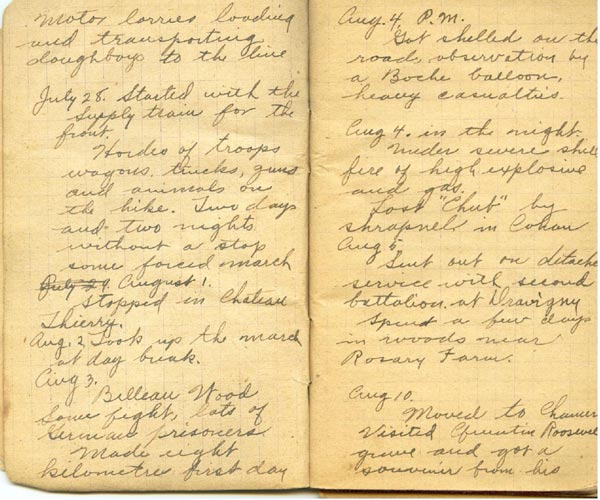 Motor lorries loading
and transporting
doughboys to the line
July 28. Started with the
Supply train for the
front.
Hordes of troops
wagons, trucks, guns
and animals on
the hike. Two days
and two nights
without a stop
some forced march
July 29. August 1.
Stopped in Chateau
Thierry.
Aug. 2. Took up the march
at day break.
Aug 3.
Belleau Wood
Some fight, lots of
German prisoners
Made eight
kilometres first day
Aug. 4, P.M.
Got shelled on the
road, observation by
a Boche balloon,
heavy casualties.
Aug 4. in the night.
Under severe shell
fire of high explosive
and gas.
Lost "Chub" by
shrapnel in Cohan
Aug 5.
Sent out on detache
service with second
battalion at Dravigny
Spend a few days
in woods near
Rosary Farm.
Aug 10.
Moved to
Visited Quentin Roosevel
grave and got a
souvinir from his